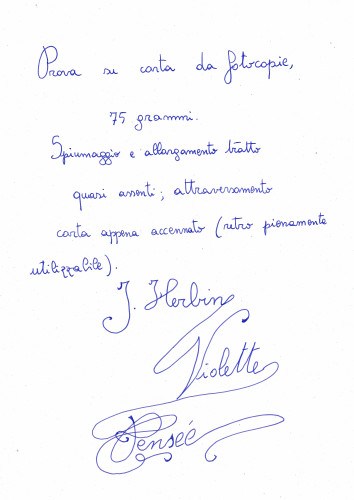 Prova su carta da fotocopie,
75 grammi.
Spiumaggio e allargamento tratto
quasi assenti; attraversamento
carta appena accennato (retro pienamente
utilizzabile).
J. Herbin
Violette
Penseé